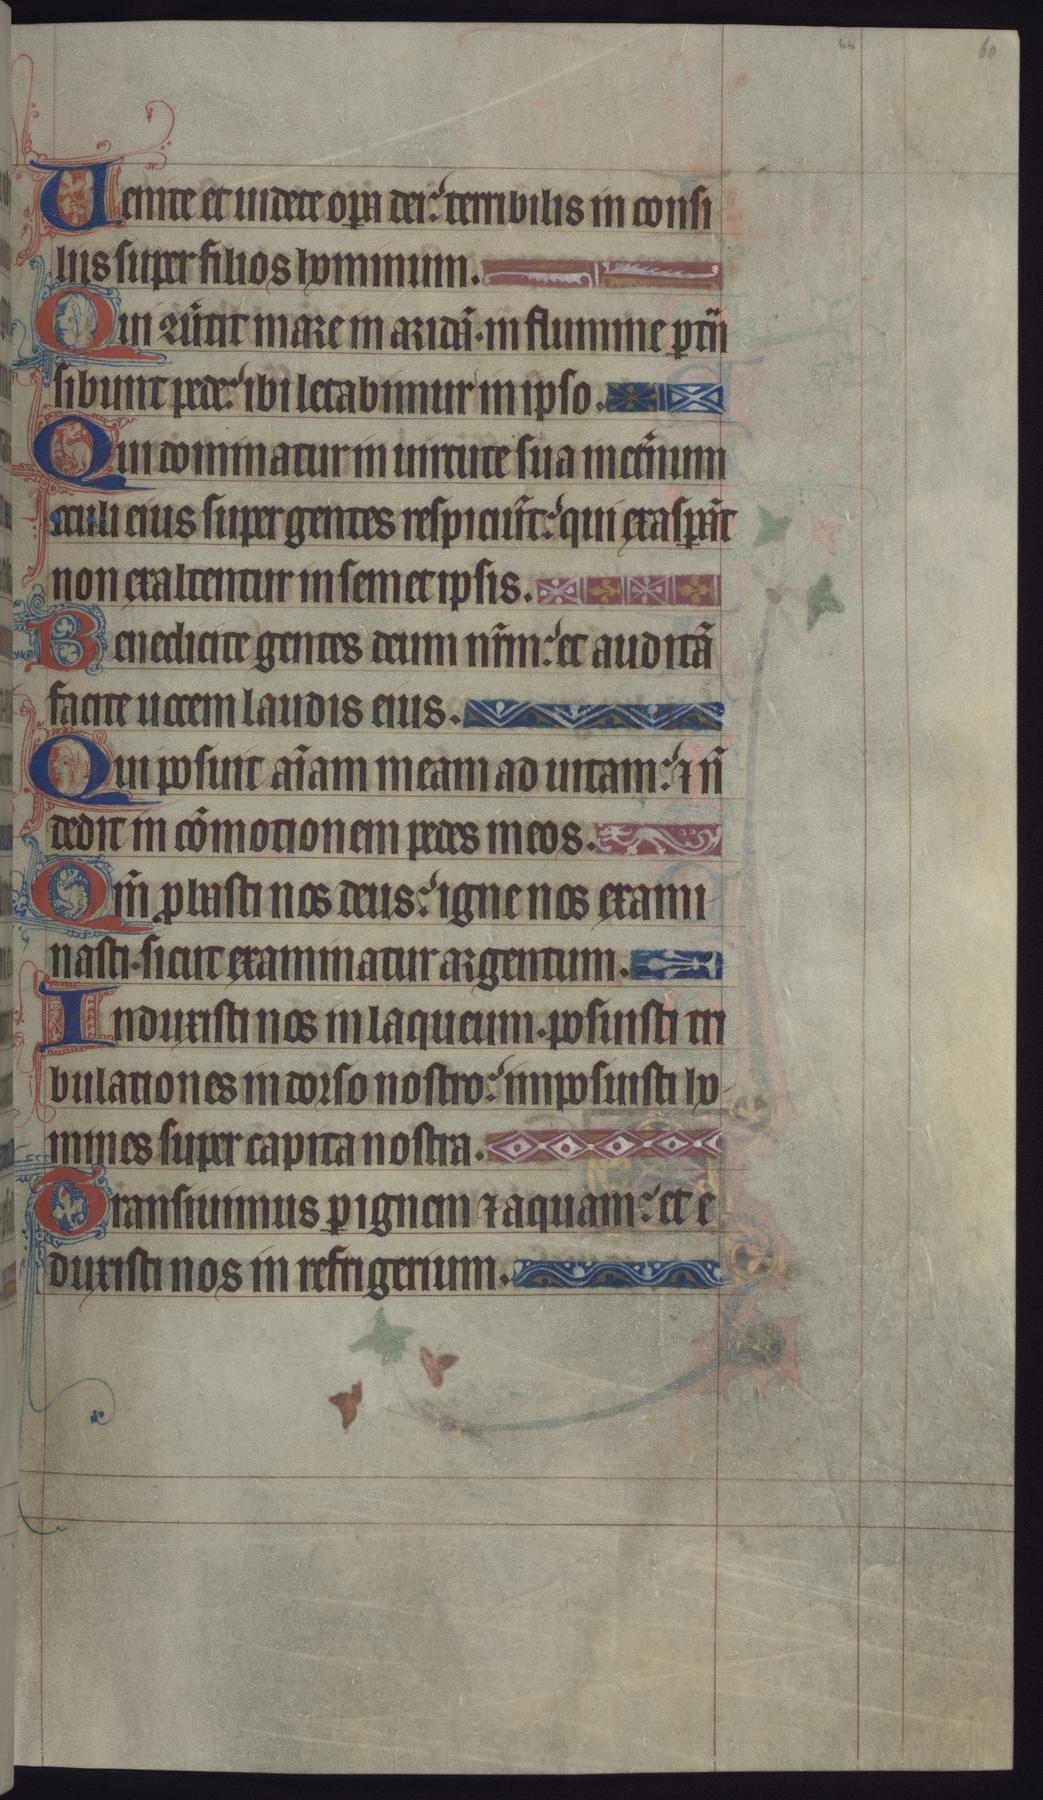 60
Uenite et uidete opa dei: terribilis in consi
liis super filios hominum.
Qui ꝯũtit mare in aridã · in flumine ptñ
sibunt pede: ibi letabimur in ipso.
Qui dominatur in uirtute sua in et̃num
oculi eius super gentes respiciũt: qui exaspãt
non exaltentur in semet ipsis.
Benedicite gentes deum nr̃m: et auditã
facite uocem laudis eius.
Qui posuit aĩam meam ad uitam: ⁊ ñ
dedit in cõmotionem pedes meos.
Qm̃ ꝓbasti nos deus: igne nos exami
nasti · sicut examinatur argentum.
Induxisti nos in laqueum · posuisti tri
bulationes in dorso nostro: imposuisti ho
mines super capita nostra.
Transiuimus ꝑ ignem ⁊ aquam: et e
duxisti nos in refrigerium.